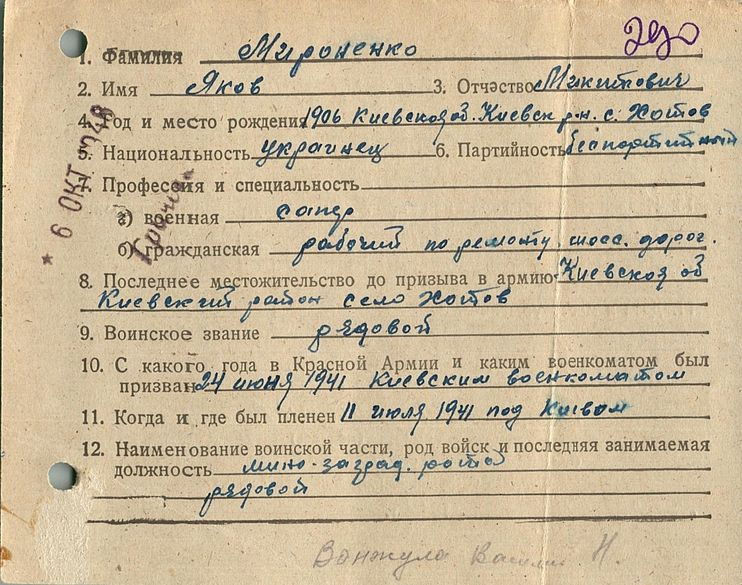 1. Фамилия Мироненко
2. Имя Яков 3. Отчэство Микитович
4. Год и место рождения 1906 Киевская об. Киевск р-н. с. Хотов
5. Национальность украинец 6. Партийность беспартийный
7. Профессия и специальность
а) военная сапер
б) гражданская рабочий по ремонту шосс. дорог.
8. Последнее местожительство до призыва в армию Киевская об
Киевский район село Хотов
9. Воинское звание рядовой
10. С какого года в Красной Армии и каким военкоматом был
призван 24 июня 1941 Киевским военкоматом
11. Когда и где был пленен 11 июля 1941 под Киевом
12. Наименование воинской части, род войск и последняя занимаемая
должность мино-заград. рота
рядовой
Ванжула Васили Н.
* 6 ОКТ